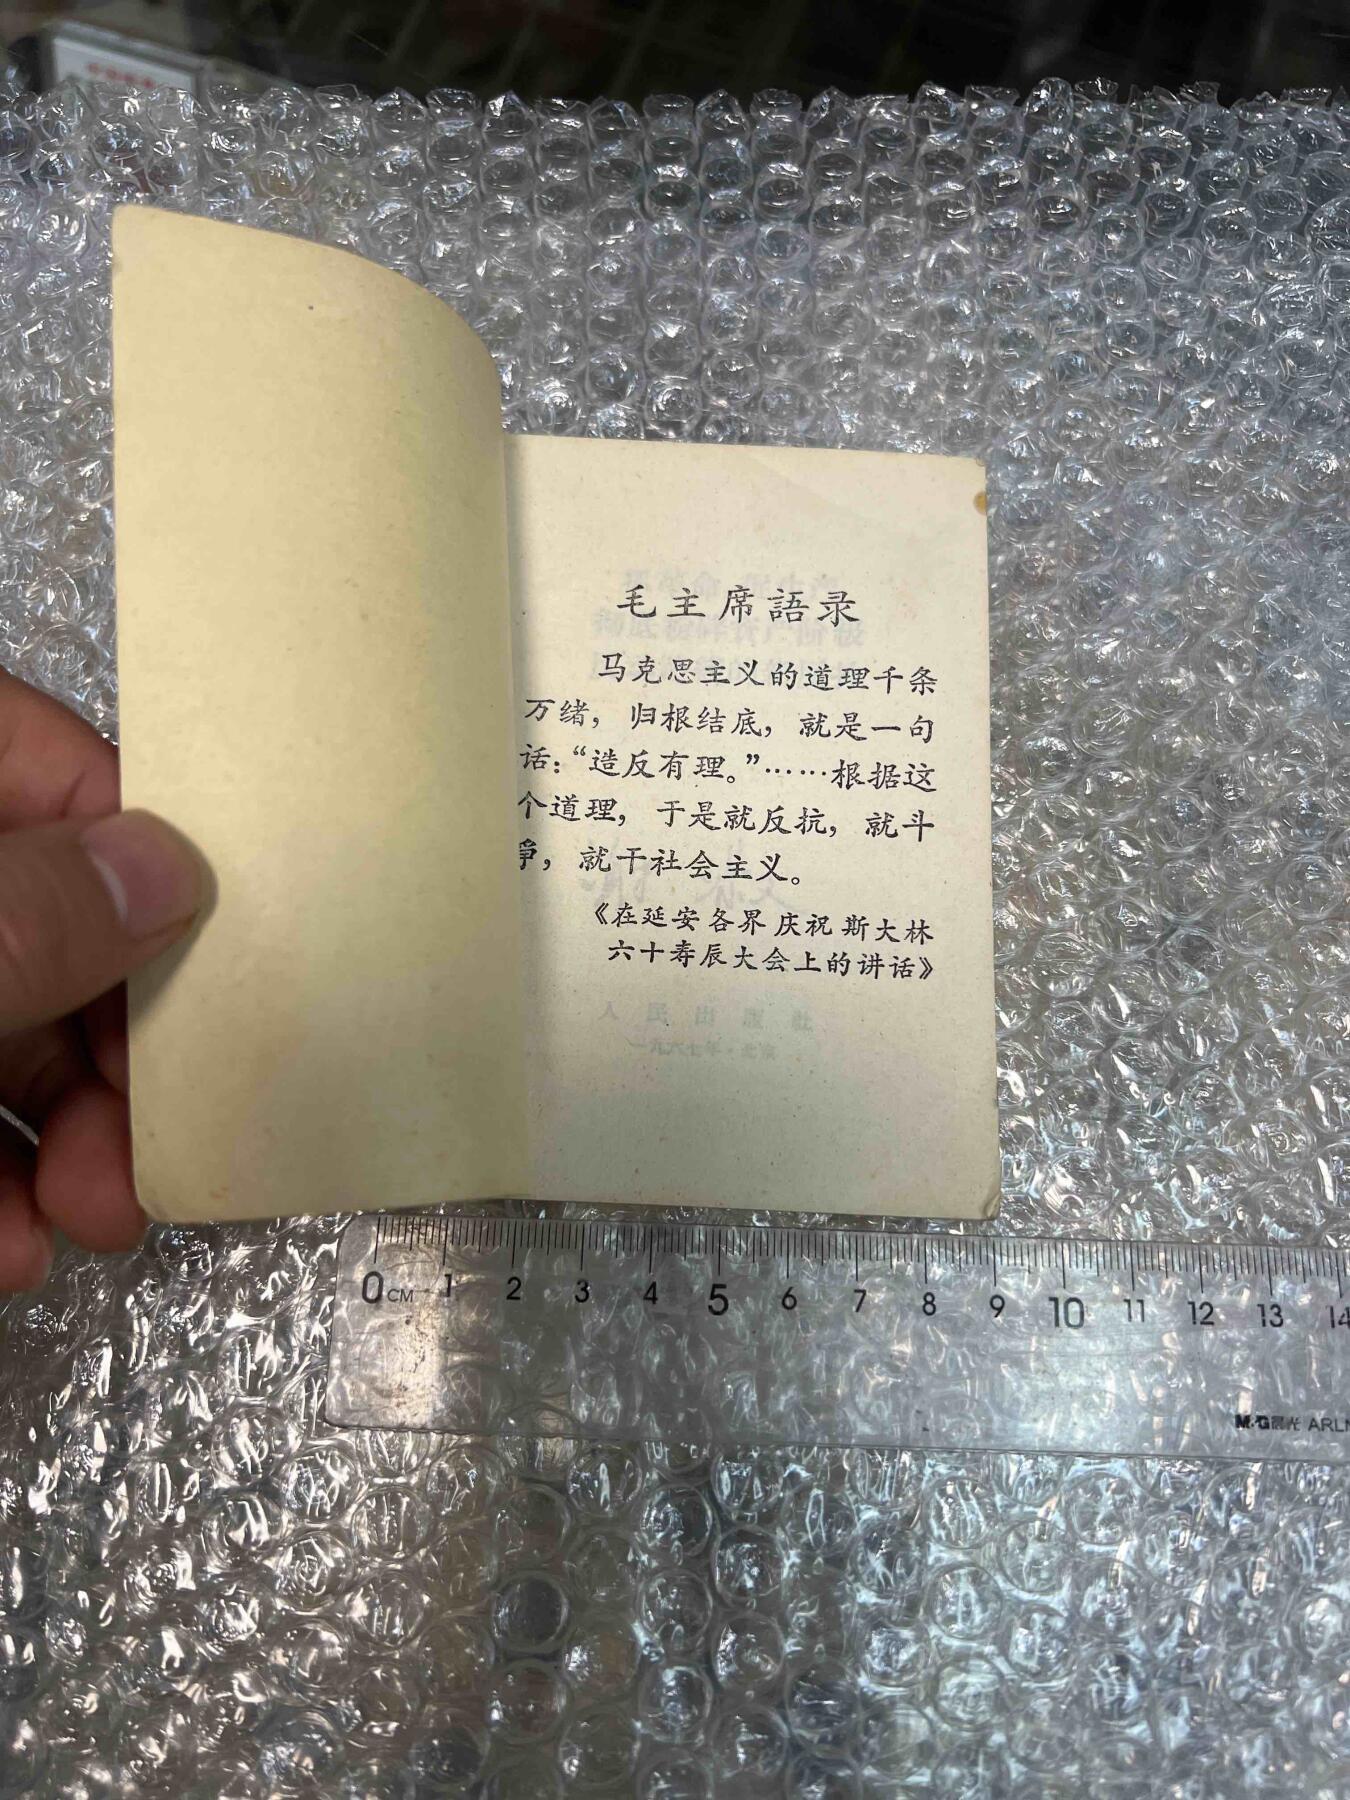 毛主席語录
马克思主义的道理千条
万绪，归根结底，就是一句
话：“造反有理。”……根据这
个道理，于是就反抗，就斗
争，就干社会主义。
《在延安各界庆祝斯大林
六十寿辰大会上的讲话》
人民出版社
一九六七年·北京
0CM 1 2 3 4 5 6 7 8 9 10 11 12 13 14
M&G晨光 ARLN